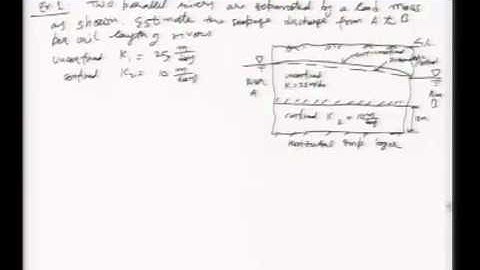 Ex. 1 Two parallel rivers are separated by a land mass
as shown. Estimate the seepage discharge from A to B
per unit length of rivers
unconfined K₁ = 25 m/day
confined K₂ = 10 m/day
G.L.
River
A
unconfined
K = 25 m/day
River
B
confined K₂ = 10 m/day
10m
horizontal imp layer